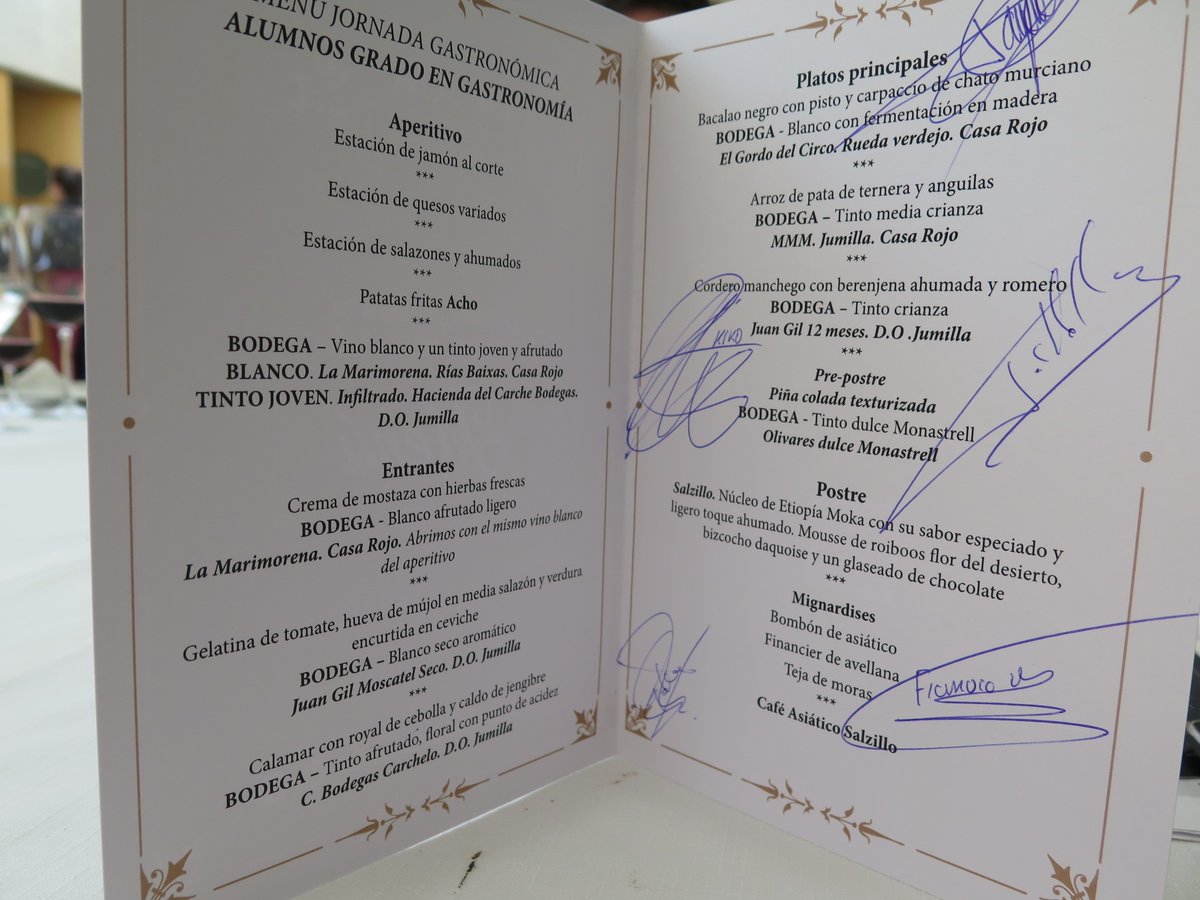 MENÚ JORNADA GASTRONÓMICA
ALUMNOS GRADO EN GASTRONOMÍA
Aperitivo
Estación de jamón al corte
***
Estación de quesos variados
***
Estación de salazones y ahumados
***
Patatas fritas Acho
***
BODEGA – Vino blanco y un tinto joven y afrutado
BLANCO. La Marimorena. Rías Baixas. Casa Rojo
TINTO JOVEN. Infiltrado. Hacienda del Carche Bodegas.
D.O. Jumilla
Entrantes
Crema de mostaza con hierbas frescas
BODEGA - Blanco afrutado ligero
La Marimorena. Casa Rojo. Abrimos con el mismo vino blanco
del aperitivo
***
Gelatina de tomate, hueva de mújol en media salazón y verdura
encurtida en ceviche
BODEGA – Blanco seco aromático
Juan Gil Moscatel Seco. D.O. Jumilla
***
Calamar con royal de cebolla y caldo de jengibre
BODEGA – Tinto afrutado, floral con punto de acidez
C. Bodegas Carchelo. D.O. Jumilla
Platos principales
Bacalao negro con pisto y carpaccio de chato murciano
BODEGA - Blanco con fermentación en madera
El Gordo del Circo. Rueda verdejo. Casa Rojo
***
Arroz de pata de ternera y anguilas
BODEGA – Tinto media crianza
MMM. Jumilla. Casa Rojo
***
Cordero manchego con berenjena ahumada y romero
BODEGA – Tinto crianza
Juan Gil 12 meses. D.O .Jumilla
KIKO
***
Pre-postre
Piña colada texturizada
BODEGA - Tinto dulce Monastrell
Olivares dulce Monastrell
Postre
Salzillo. Núcleo de Etiopía Moka con su sabor especiado y
ligero toque ahumado. Mousse de roiboos flor del desierto,
bizcocho daquoise y un glaseado de chocolate
***
Mignardises
Bombón de asiático
Financier de avellana
Teja de moras
***
Café Asiático Salzillo